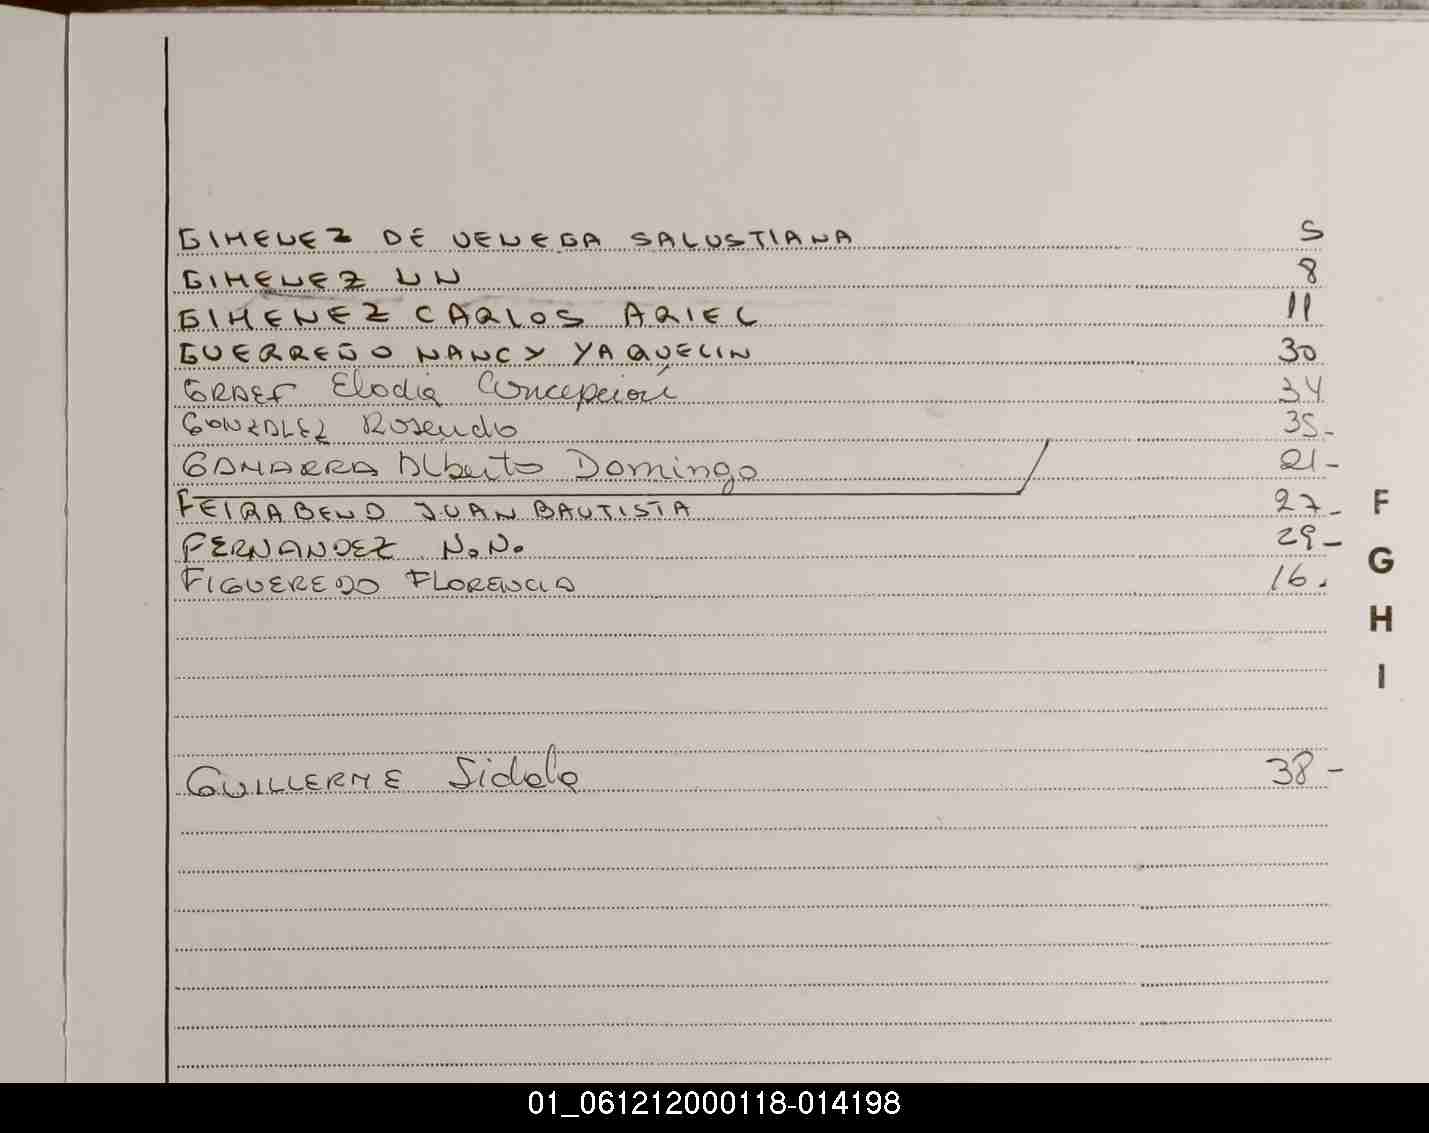 GIMENEZ DE VENEGA SALUSTIANA 5
GIMENEZ NN 8
GIMENEZ CARLOS ARIEL 11
GUERREÑO NANCY YAQUELIN 30
GRAEF Elodia Concepción 34
GONZALEZ Rosendo 35-
GAMARRA Alberto Domingo 21-
FEIRABEND JUAN BAUTISTA 27-
FERNANDEZ N.N. 29-
FIGUEREDO FLORENCIA 16.
GUILLERME 38-
F
G
H
I
01_061212000118-014198